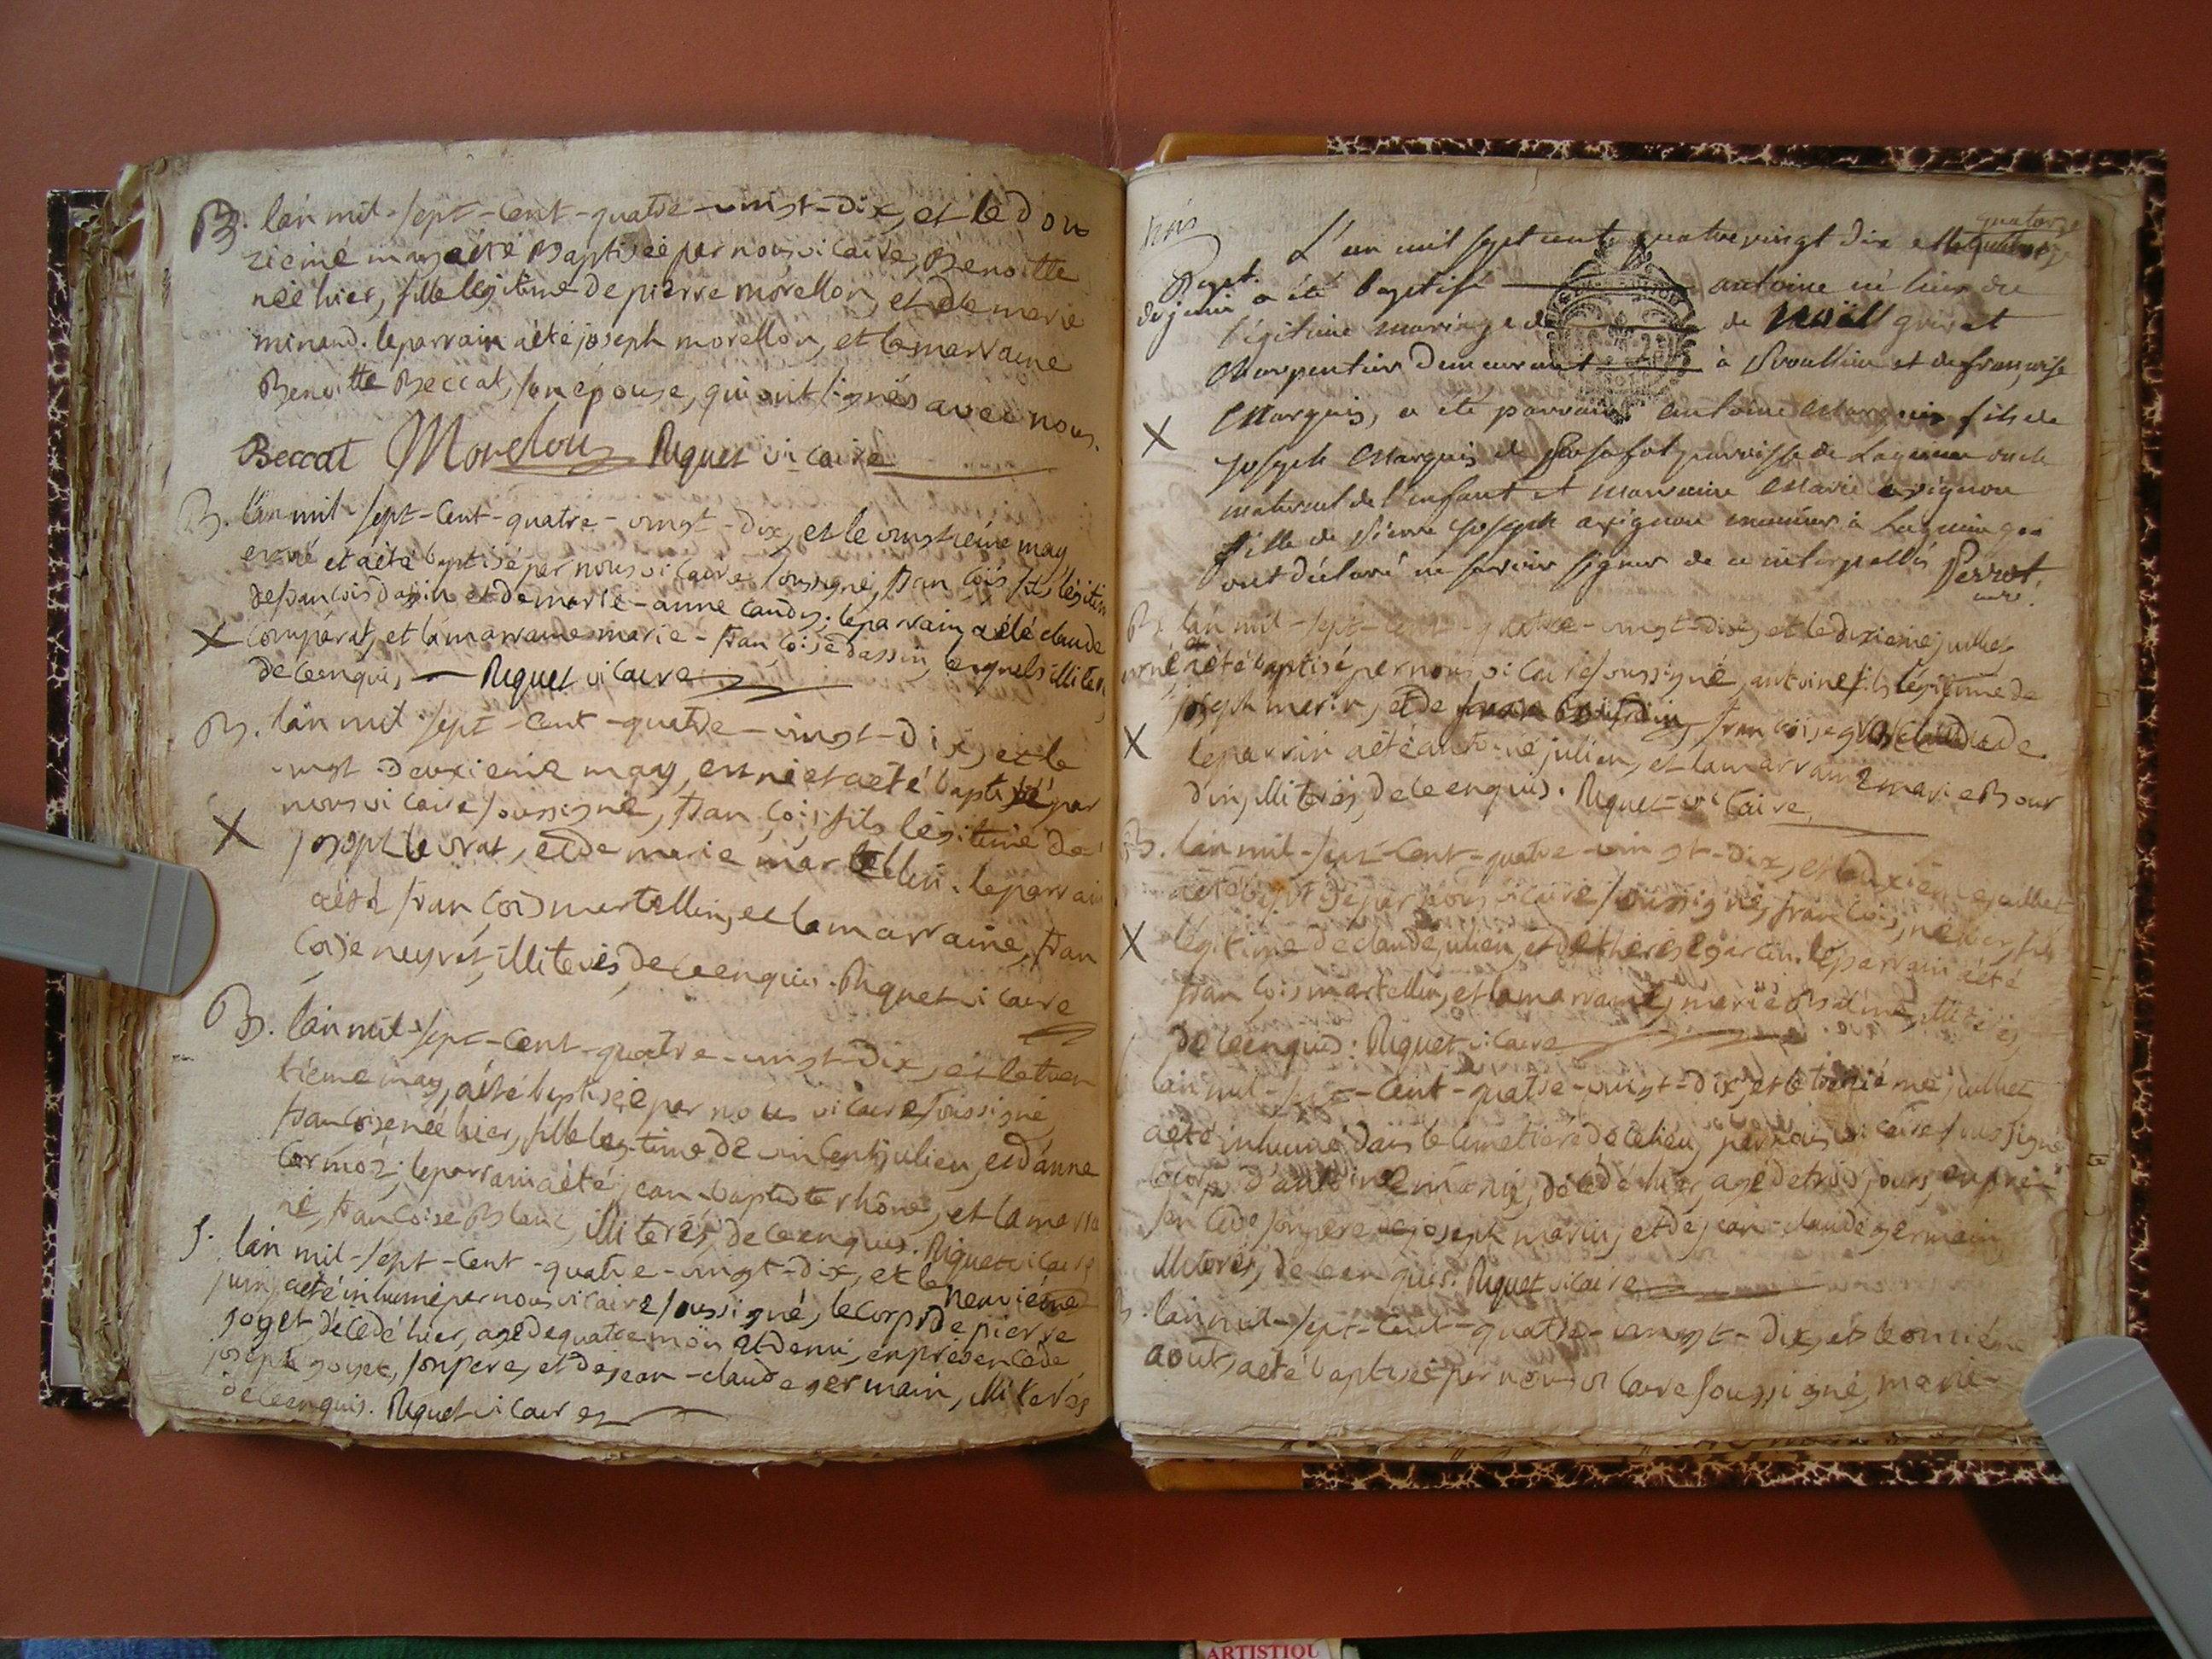 B. lan mil-sept-cent-quatre-vingt-dix, et le dou
zieme may a été Baptisée par nous vicaire, Benoitte
née hier, fille légitime de pierre morellon, et de marie
minand. le parrain a été joseph morellon, et la marraine
Benoitte Beccat, son épouse, qui ont signés avec nous.
Beccat Morelon Riquet vicaire
B. lan mil-sept-cent-quatre-vingt-dix, et le vingtieme may
est né et a été baptisé par nous vicaire soussigné, françois fils légitim
de françois dassin et de marie-anne caudy. le parrain a été claude
X comperat, et la marraine marie-françoise dassin, lesquels illiterés
de ce enquis, Riquet vicaire
B. lan mil sept-cent-quatre-vingt-dix, et le
vingt-deuxieme may, est né et a été baptisé par
X nous vicaire soussigné, françois fils légitime de
joseph levrat, et de marie martellin. le parrain
a été françois martellin, et la marraine, fran
çoise neyret illiterés, de ce enquis. Riquet vicaire
B. lan mil-sept-cent-quatre-vingt-dix, et le tren
tieme may, a été baptisée par nous vicaire soussigné
françoise née hier, fille légitime de vincent julien, et d'anne
cormoz; le parrain a été jean-baptiste rhône, et la marra
ne, françoise Blanc, illiterés, de ce enquis. Riquet vicaire
S. lan mil-sept-cent-quatre-vingt-dix, et le neuvième
juin, a été inhumé par nous vicaire soussigné, le corps de pierre
goyet, décédé hier, agé de quatre mois et demi, en présence de
joseph goyet, son pere, et de jean-claude germain, illiterés
de ce enquis. Riquet vicaire
trois
quatorze
L'an mil sept cent quatre vingt dix et le
Bapt. a été baptisé antoine né hier du
de juin
légitime mariage de de noël
charpentier demeurant à et de françoise
Marquis, a été parrain antoine Marquis fils de
X joseph Marquis de paroisse de oncle
maternel de l'enfant et marraine Marie avignon
fille de Pierre joseph avignon à qui
ont déclaré ne savoir signer de ce interpellés Perrot.
curé.
B. lan mil-sept-cent-quatre-vingt-dix, et le dixieme juillet
est né et a été baptisé par nous vicaire soussigné, antoine fils légitime de
joseph merin, et de françoise
X le parrain a été antoine julien, et la marraine marie Bour
din, illiterés, de ce enquis. Riquet vicaire
B. lan mil-sept-cent-quatre-vingt-dix, et juillet
a été baptisé par nous vicaire soussigné, françois, né hier, fils
X légitime de claude julien, et de therese garcin. le parrain a été
françois martellin, et la marraine, marie illiterés
de ce enquis: Riquet vicaire
lan mil-sept-cent-quatre-vingt-dix, et le treizième juillet
a été inhumé dans le cimetière de ce lieu, par nous vicaire soussigné
le corps d'antoine marin, décédé hier, agé de trois jours, en pré-
sence de son pere joseph marin, et de jean-claude germain
illiterés, de ce enquis. Riquet vicaire
B. lan mil-sept-cent-quatre-vingt-dix, et le onzième
aout, a été baptisée par nous vicaire soussigné, marie-
ARTISTIQU